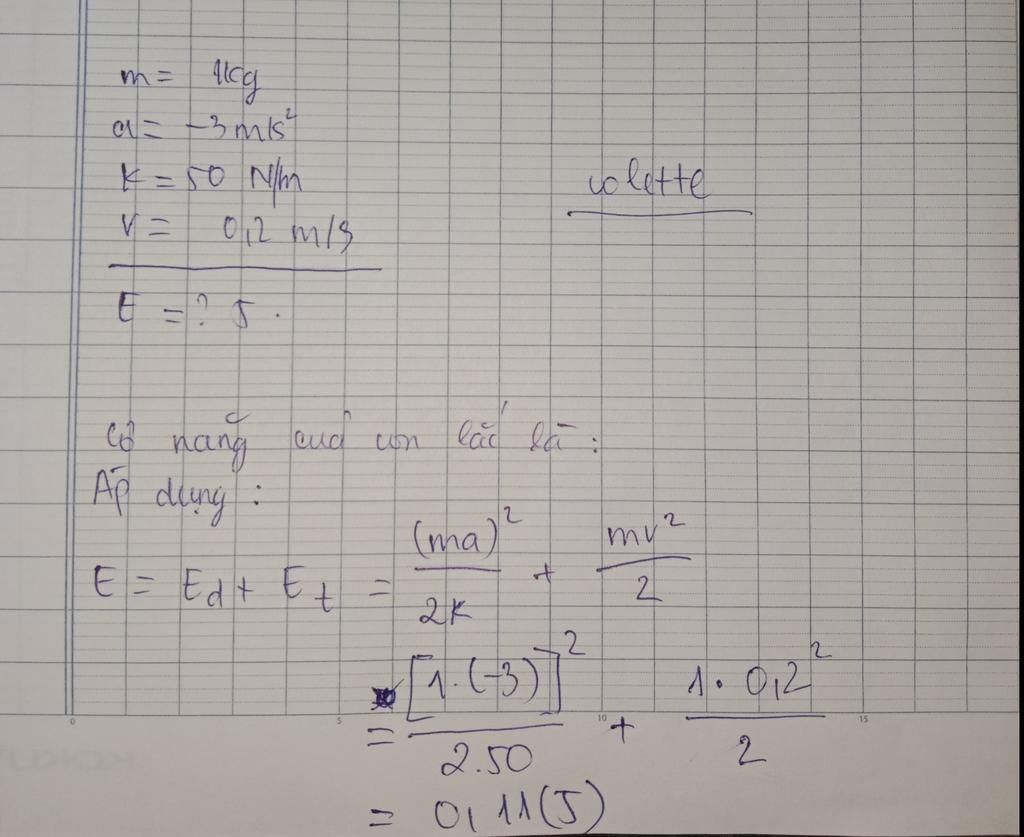 m = 1kg
a = -3 m/s²
k = 50 N/m
v = 0,2 m/s
colette
E = ? J.
Cơ năng của con lắc là:
Áp dụng:
E = E_d + E_t = (ma)²/2k + mv²/2
= [1.(-3)]²/2.50 + 1.0,2²/2
= 0,11(J)
0 5 10 15